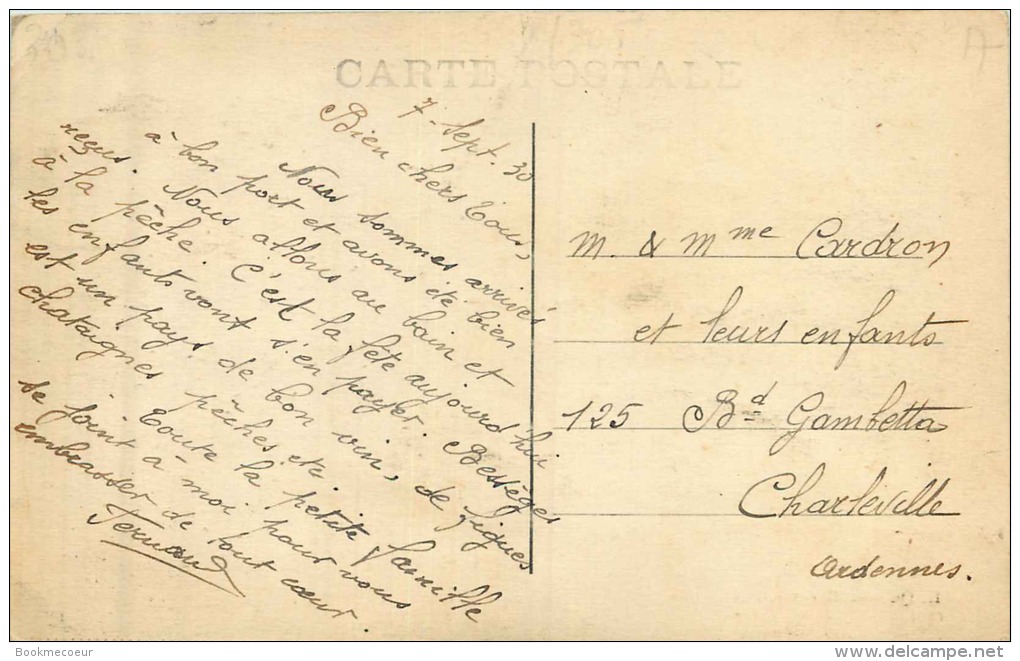 CARTE POSTALE
7 - Sept. 30
Bien chers tous,
Nous sommes arrivés
à bon port et avons été bien
reçus. Nous allons au bain et
à la pêche. C'est la fête aujourd'hui
les enfants vont s'en payer. Bessèges
est un pays de bon vin, de figues
chataignes pêches etc.
Toute la petite famille
se joint à moi pour vous
embrasser de tout cœur.
Fernand
M. & Mme Cardron
et leurs enfants
125 Bd Gambetta
Charleville
Ardennes.
Bookmecoeur
www.delcampe.net